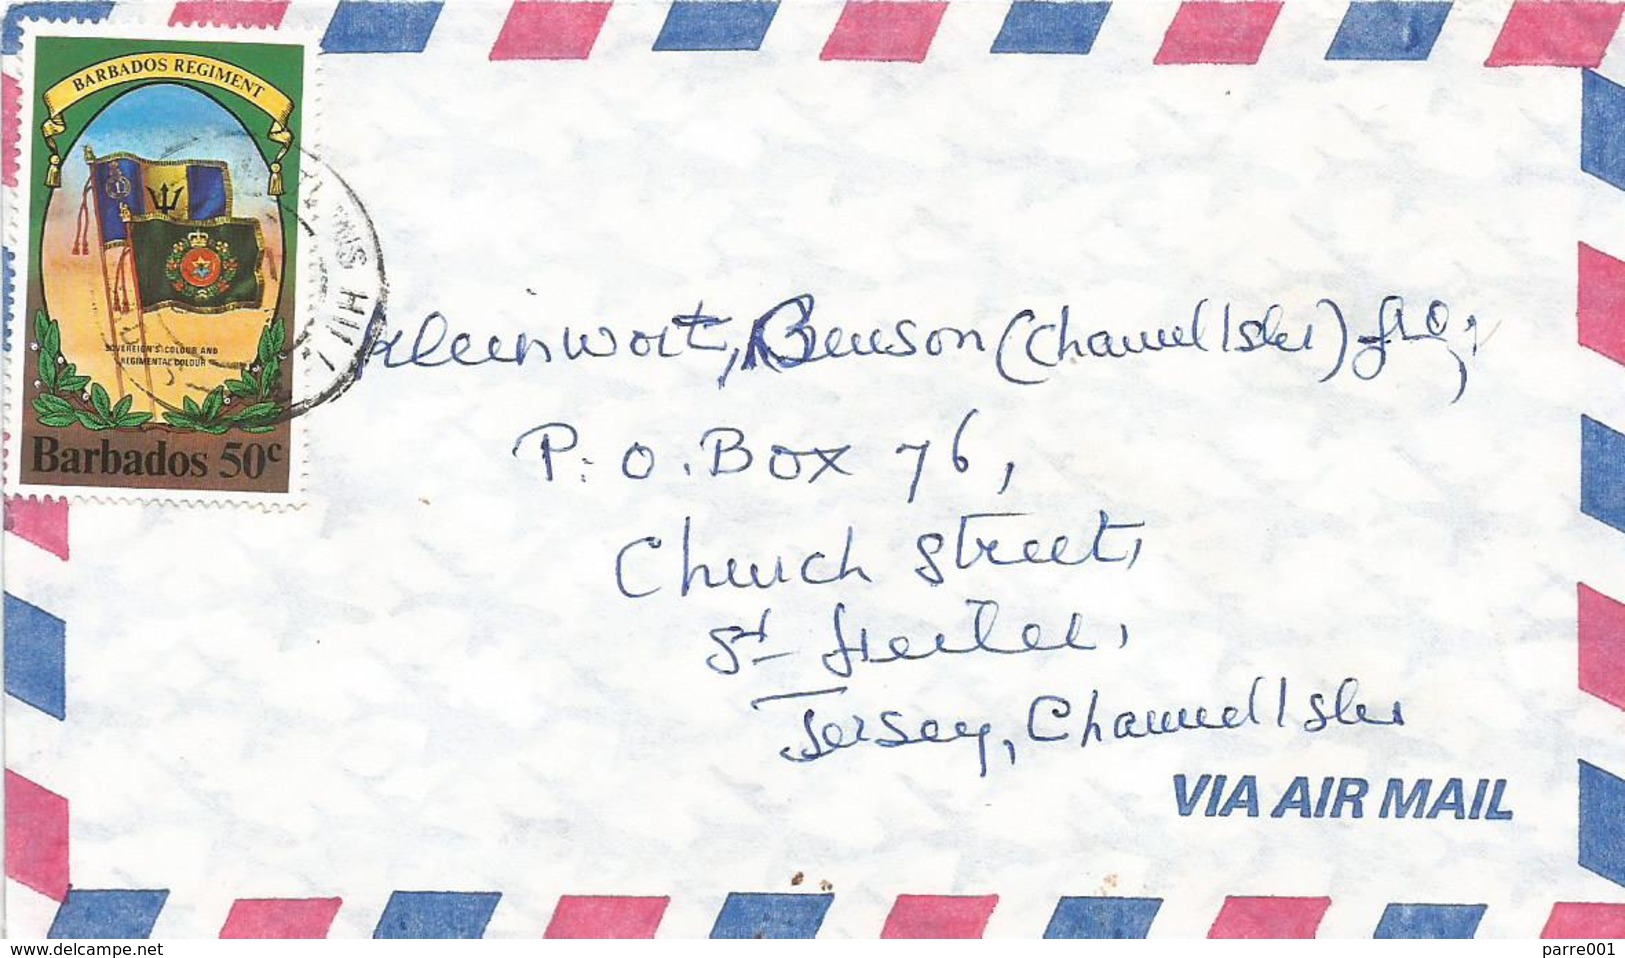 BARBADOS REGIMENT
SOVEREIGN'S COLOUR AND
REGIMENTAL COLOUR
Barbados 50c
HILL
Kleinwort, Benson (Channel Isles)
P.O. Box 76,
Church Street,
St Helier,
Jersey, Channel Isles
VIA AIR MAIL
www.delcampe.net
parre001